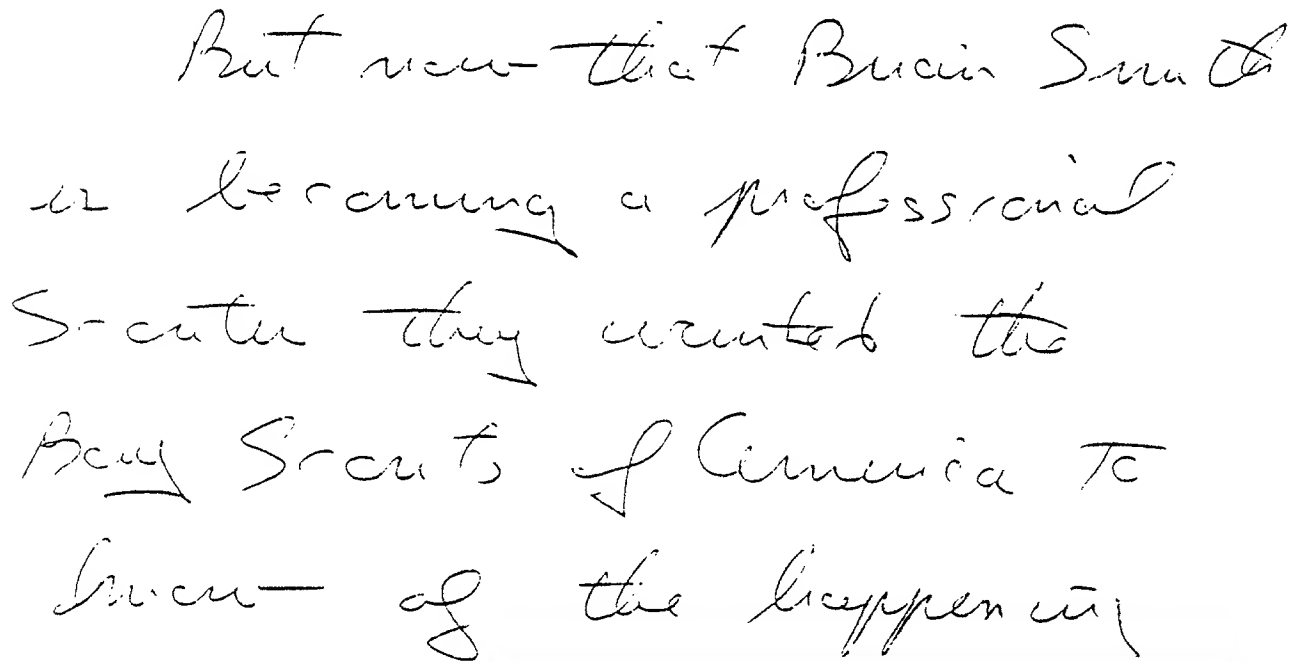 But now that Brian Smith
is becoming a professional
Scouter they wanted the
Boy Scouts of America to
know of the happening